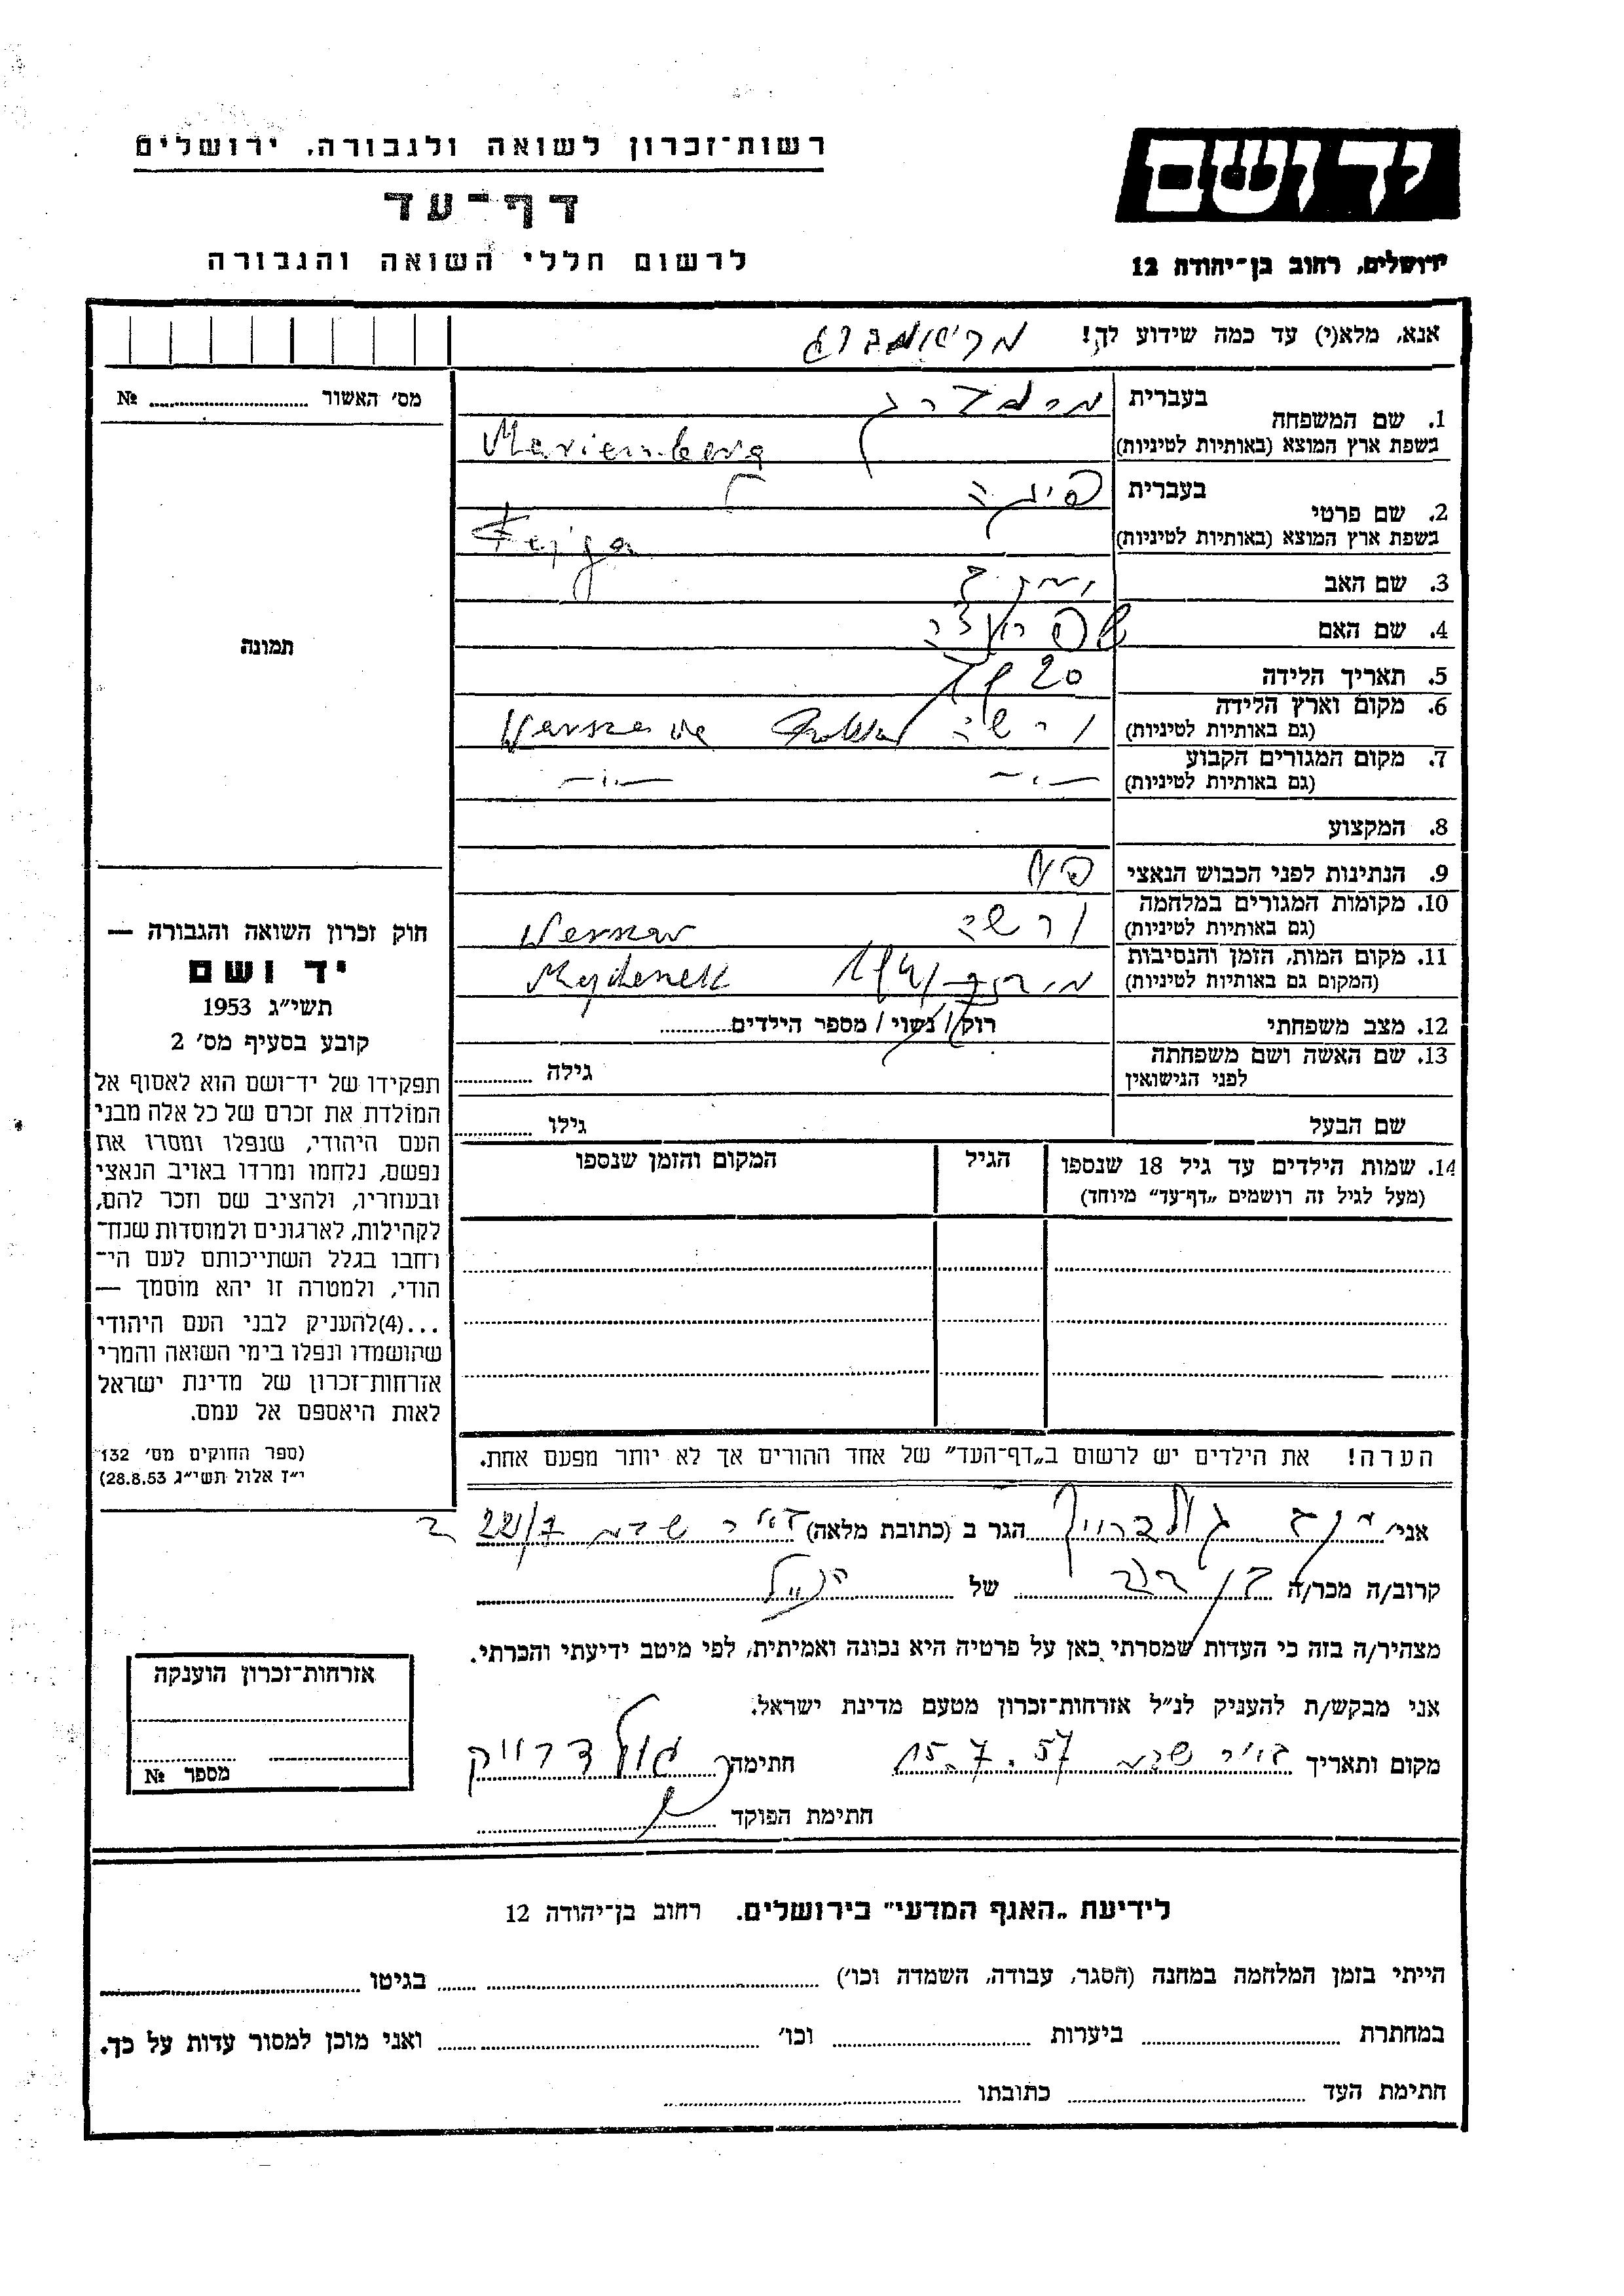 רשות־זכרון לשואה ולגבורה, ירושלים
דף־עד
לרשום חללי השואה והגבורה
יד ושם
ירושלים, רחוב בן־יהודה 12
אנא, מלא(י) עד כמה שידוע לך!
מס׳ האשור № ........
1. שם המשפחה
בעברית
בשפת ארץ המוצא (באותיות לטיניות) Mariemberg
2. שם פרטי
בעברית פיגה
בשפת ארץ המוצא (באותיות לטיניות) Fejga
3. שם האב
4. שם האם
5. תאריך הלידה 20
6. מקום וארץ הלידה
(גם באותיות לטיניות) ורשה Warszawa
7. מקום המגורים הקבוע
(גם באותיות לטיניות) —״— —״—
8. המקצוע
9. הנתינות לפני הכבוש הנאצי
10. מקומות המגורים במלחמה
(גם באותיות לטיניות) ורשה
11. מקום המות, הזמן והנסיבות
(המקום גם באותיות לטיניות) Majdanek
12. מצב משפחתי רוק/ נשוי / מספר הילדים........
13. שם האשה ושם משפחתה
לפני הנישואין
גילה ........
שם הבעל גילו ........
14. שמות הילדים עד גיל 18 שנספו
(מעל לגיל זה רושמים „דף־עד״ מיוחד)
הגיל
המקום והזמן שנספו
תמונה
חוק זכרון השואה והגבורה —
יד ושם
תשי״ג 1953
קובע בסעיף מס׳ 2
תפקידו של יד־ושם הוא לאסוף אל
המולדת את זכרם של כל אלה מבני
העם היהודי, שנפלו ומסרו את
נפשם, נלחמו ומרדו באויב הנאצי
ובעוזריו, ולהציב שם וזכר להם,
לקהילות, לארגונים ולמוסדות שנח־
רחבו בגלל השתייכותם לעם הי־
הודי, ולמטרה זו יהא מוסמך —
...(4)להעניק לבני העם היהודי
שהושמדו ונפלו בימי השואה והמרי
אזרחות־זכרון של מדינת ישראל
לאות היאספם אל עמם.
(ספר החוקים מס׳ 132
י״ז אלול תשי״ג 28.8.53)
הערה! את הילדים יש לרשום ב„דף־העד״ של אחד ההורים אך לא יותר מפעם אחת.
אני גולדברויק הגר ב (כתובת מלאה)
קרוב/ה מכר/ה בן דוד של הנ״ל
מצהיר/ה בזה כי העדות שמסרתי כאן על פרטיה היא נכונה ואמיתית, לפי מיטב ידיעתי והכרתי.
אני מבקש/ת להעניק לנ״ל אזרחות־זכרון מטעם מדינת ישראל.
מקום ותאריך באר שבע 15.7.57 חתימה
חתימת הפוקד
אזרחות־זכרון הוענקה
מספר №
לידיעת „האגף המדעי״ בירושלים. רחוב בן־יהודה 12
הייתי בזמן המלחמה במחנה (הסגר, עבודה, השמדה וכו׳) ........ בגיטו ........
במחתרת ........ ביערות ........ וכו׳ ........ ואני מוכן למסור עדות על כך.
חתימת העד ........ כתובתו ........